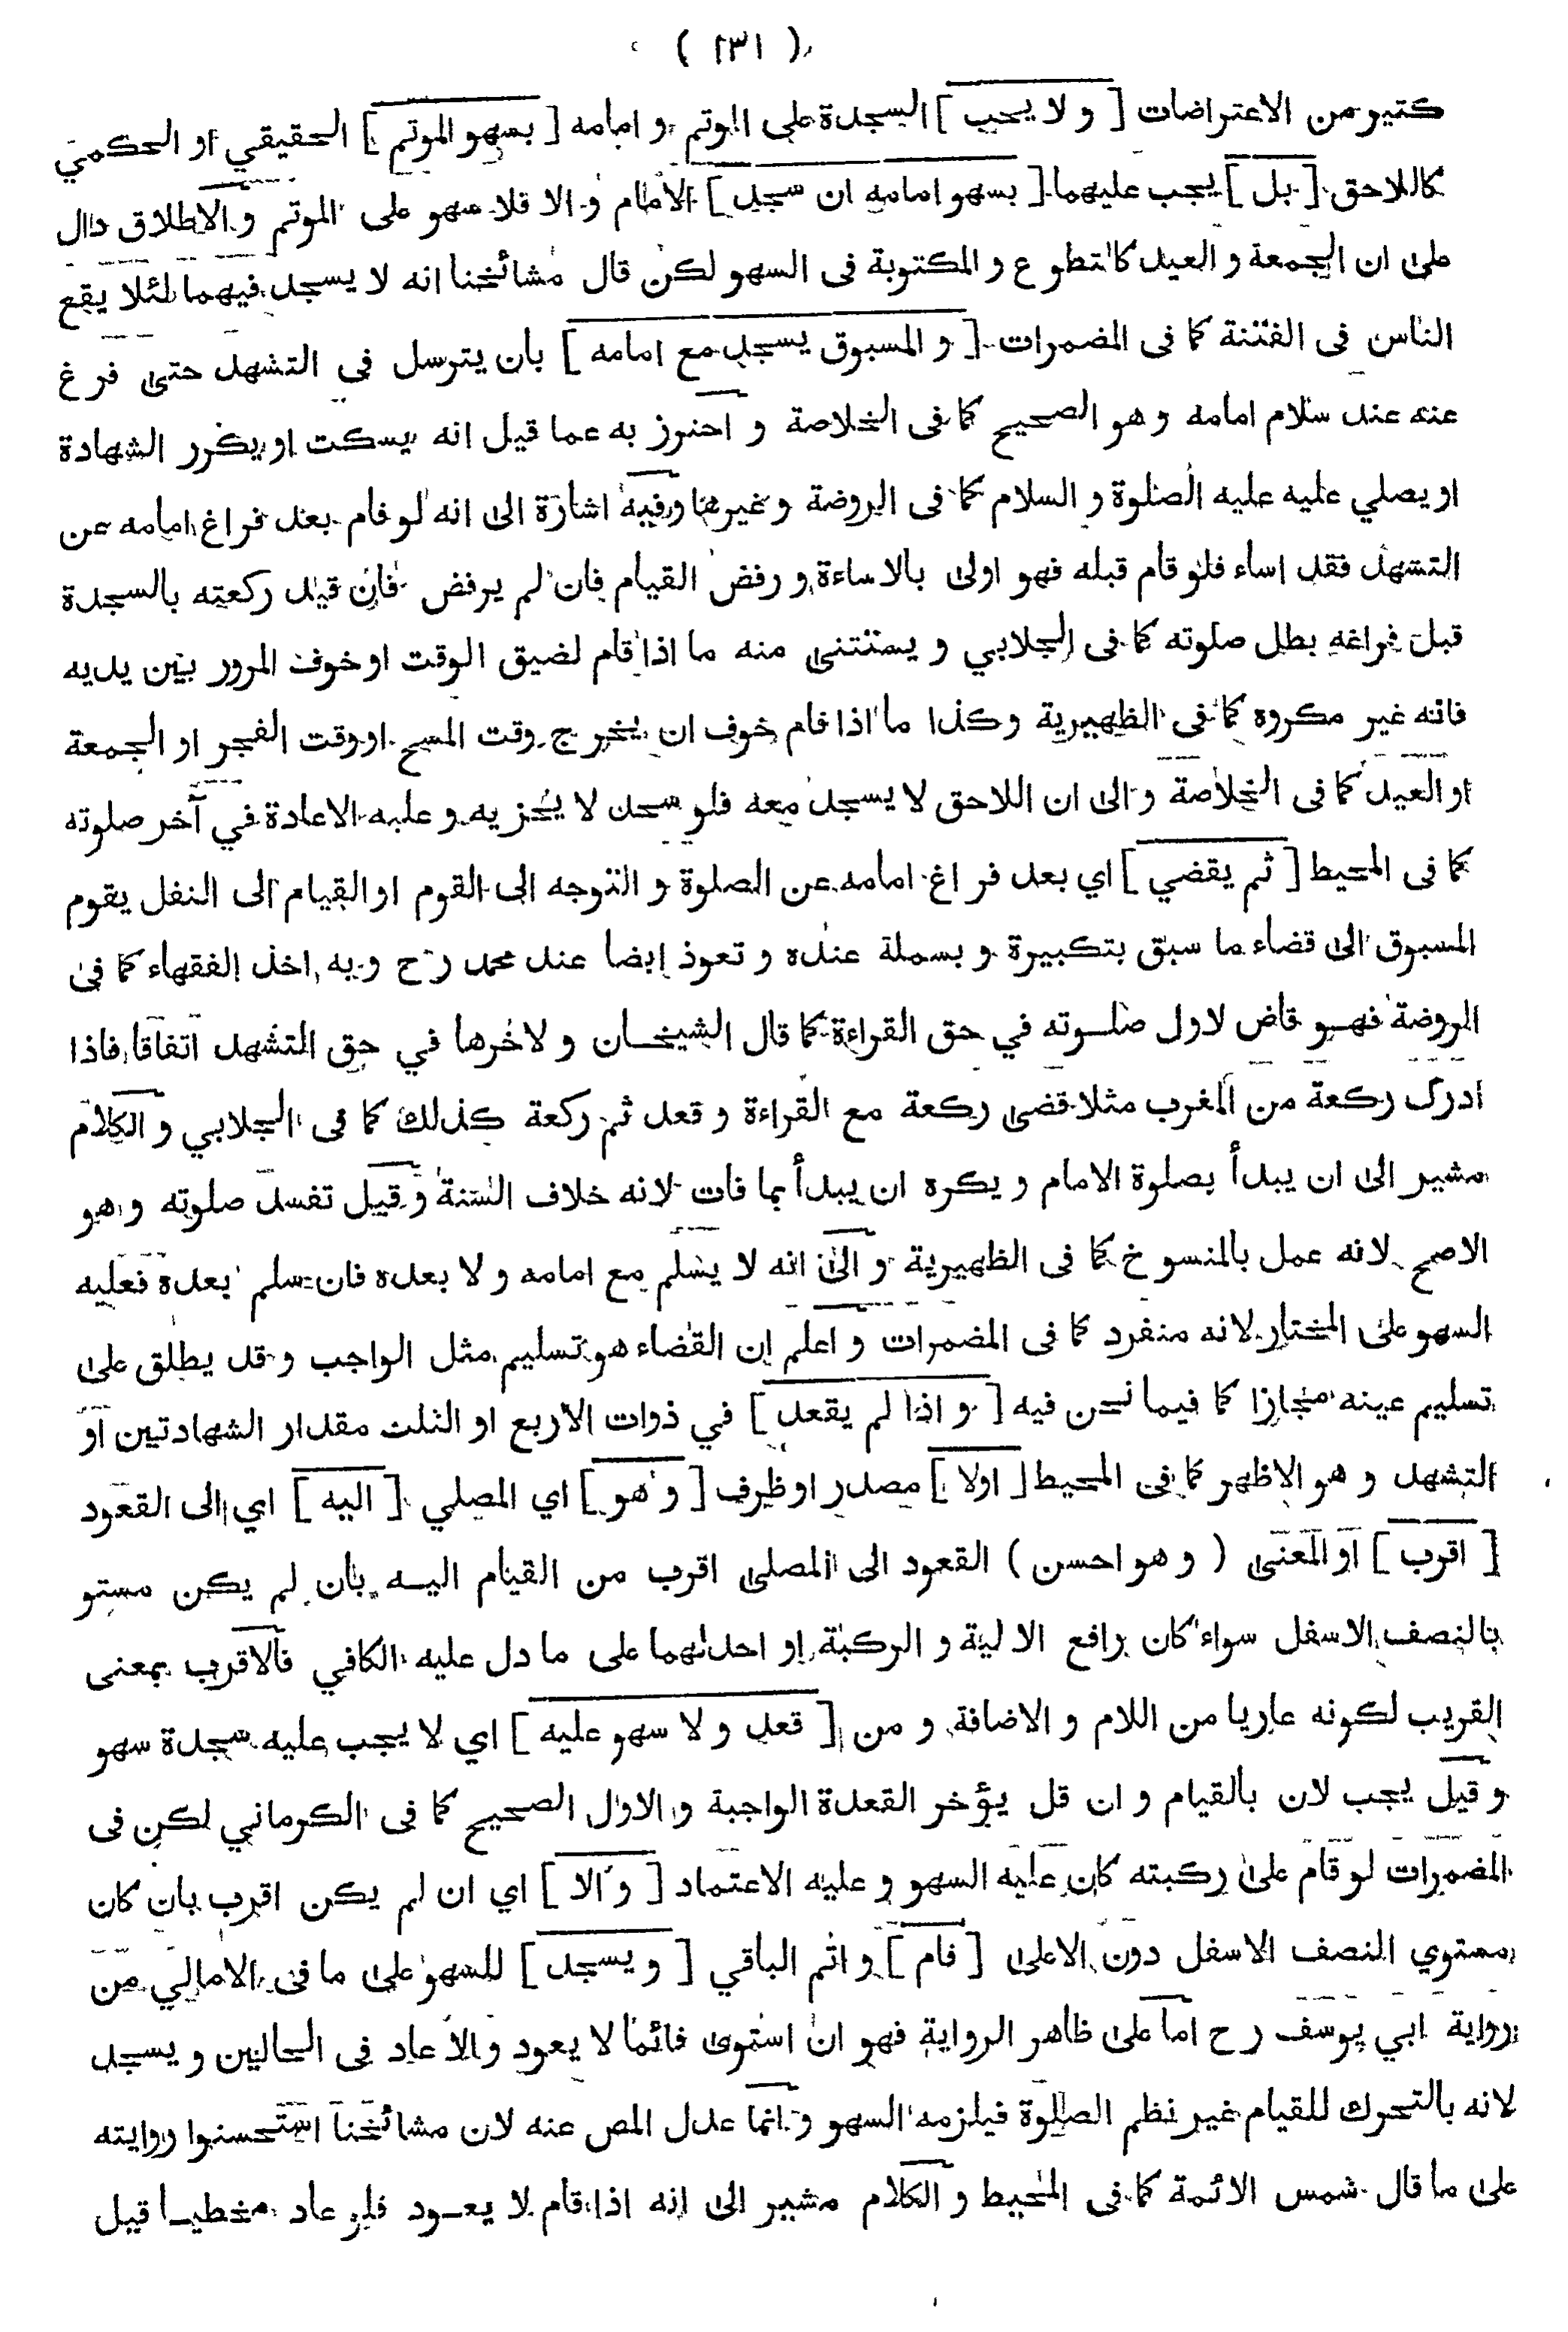 ( ١٣١ )
كثير من الاعتراضات [ و لا يجب ] السجدة على الموتم و امامه [ بسهو الموتم ] الحقيقي او الحكمي
كاللاحق [ بل ] يجب عليهما [ بسهو امامه ان سجد ] الامام و الا فلا سهو على الموتم و الاطلاق دال
على ان الجمعة و العيد كالتطوع و المكتوبة فى السهو لكن قال مشائخنا انه لا يسجد فيهما لئلا يقع
الناس فى الفتنة كما فى المضمرات [ و المسبوق يسجد مع امامه ] بان يترسل في التشهد حتى فرغ
عنه عند سلام امامه و هو الصحيح كما فى الخلاصة و احترز به عما قيل انه يسكت او يكرر الشهادة
او يصلي عليه عليه الصلوة و السلام كما فى الروضة و غيرها و فيه اشارة الى انه لو قام بعد فراغ امامه عن
التشهد فقد اساء فلو قام قبله فهو اولى بالاساءة و رفض القيام فان لم يرفض فان قيد ركعته بالسجدة
قبل فراغه بطل صلوته كما فى الجلابي و يستثنى منه ما اذا قام لضيق الوقت او خوف المرور بين يديه
فانه غير مكروه كما فى الظهيرية و كذا ما اذا قام خوف ان يخرج وقت المسح او وقت الفجر او الجمعة
او العيد كما فى الخلاصة و الى ان اللاحق لا يسجد معه فلو سجد لا يجزيه و عليه الاعادة في آخر صلوته
كما فى المحيط [ ثم يقضي ] اي بعد فراغ امامه عن الصلوة و التوجه الى القوم او القيام الى النفل يقوم
المسبوق الى قضاء ما سبق بتكبيرة و بسملة عنده و تعوذ ايضا عند محمد رح و به اخذ الفقهاء كما فى
الروضة فهو قاض لاول صلوته في حق القراءة كما قال الشيخان و لاخرها في حق التشهد اتفاقا فاذا
ادرك ركعة من المغرب مثلا قضى ركعة مع القراءة و قعد ثم ركعة كذلك كما فى الجلابي و الكلام
مشير الى ان يبدأ بصلوة الامام و يكره ان يبدأ بما فات لانه خلاف السنة و قيل تفسد صلوته و هو
الاصح لانه عمل بالمنسوخ كما فى الظهيرية و الى انه لا يسلم مع امامه و لا بعده فان سلم بعده فعليه
السهو على المختار لانه منفرد كما فى المضمرات و اعلم ان القضاء هو تسليم مثل الواجب و قد يطلق على
تسليم عينه مجازا كما فيما نحن فيه [ و اذا لم يقعد ] في ذوات الاربع او الثلث مقدار الشهادتين او
التشهد و هو الاظهر كما فى المحيط [ اولا ] مصدر او ظرف [ و هو ] اي المصلي [ اليه ] اي الى القعود
[ اقرب ] او المعنى ( و هو احسن ) القعود الى المصلى اقرب من القيام اليه بان لم يكن مستو
بالنصف الاسفل سواء كان رافع الالية و الركبة او احدلهما على ما دل عليه الكافي فالاقرب بمعنى
القريب لكونه عاريا من اللام و الاضافة و من [ قعد و لا سهو عليه ] اي لا يجب عليه سجدة سهو
و قيل يجب لان بالقيام و ان قل يؤخر القعدة الواجبة و الاول الصحيح كما فى الكرماني لكن فى
المضمرات لو قام على ركبته كان عليه السهو و عليه الاعتماد [ و الا ] اي ان لم يكن اقرب بان كان
مستوي النصف الاسفل دون الاعلى [ قام ] و اتم الباقي [ و يسجد ] للسهو على ما فى الامالي من
رواية ابي يوسف رح اما على ظاهر الرواية فهو ان استوى قائما لا يعود و الا عاد فى الحالين و يسجد
لانه بالتحرك للقيام غير نظم الصلوة فيلزمه السهو و انما عدل المص عنه لان مشائخنا استحسنوا روايته
على ما قال شمس الائمة كما فى المحيط و الكلام مشير الى انه اذا قام لا يعود فلو عاد مخطيا قيل